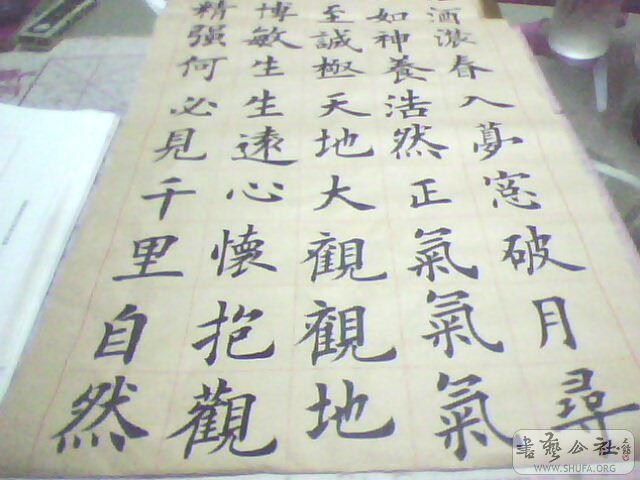 酒濃春入夢窓破月尋
如神養浩然正氣氣氣
至誠極天地大觀觀地
博敏生生遠心懷抱觀
精強何必見千里自然
書藝公社
WWW.SHUFA.ORG